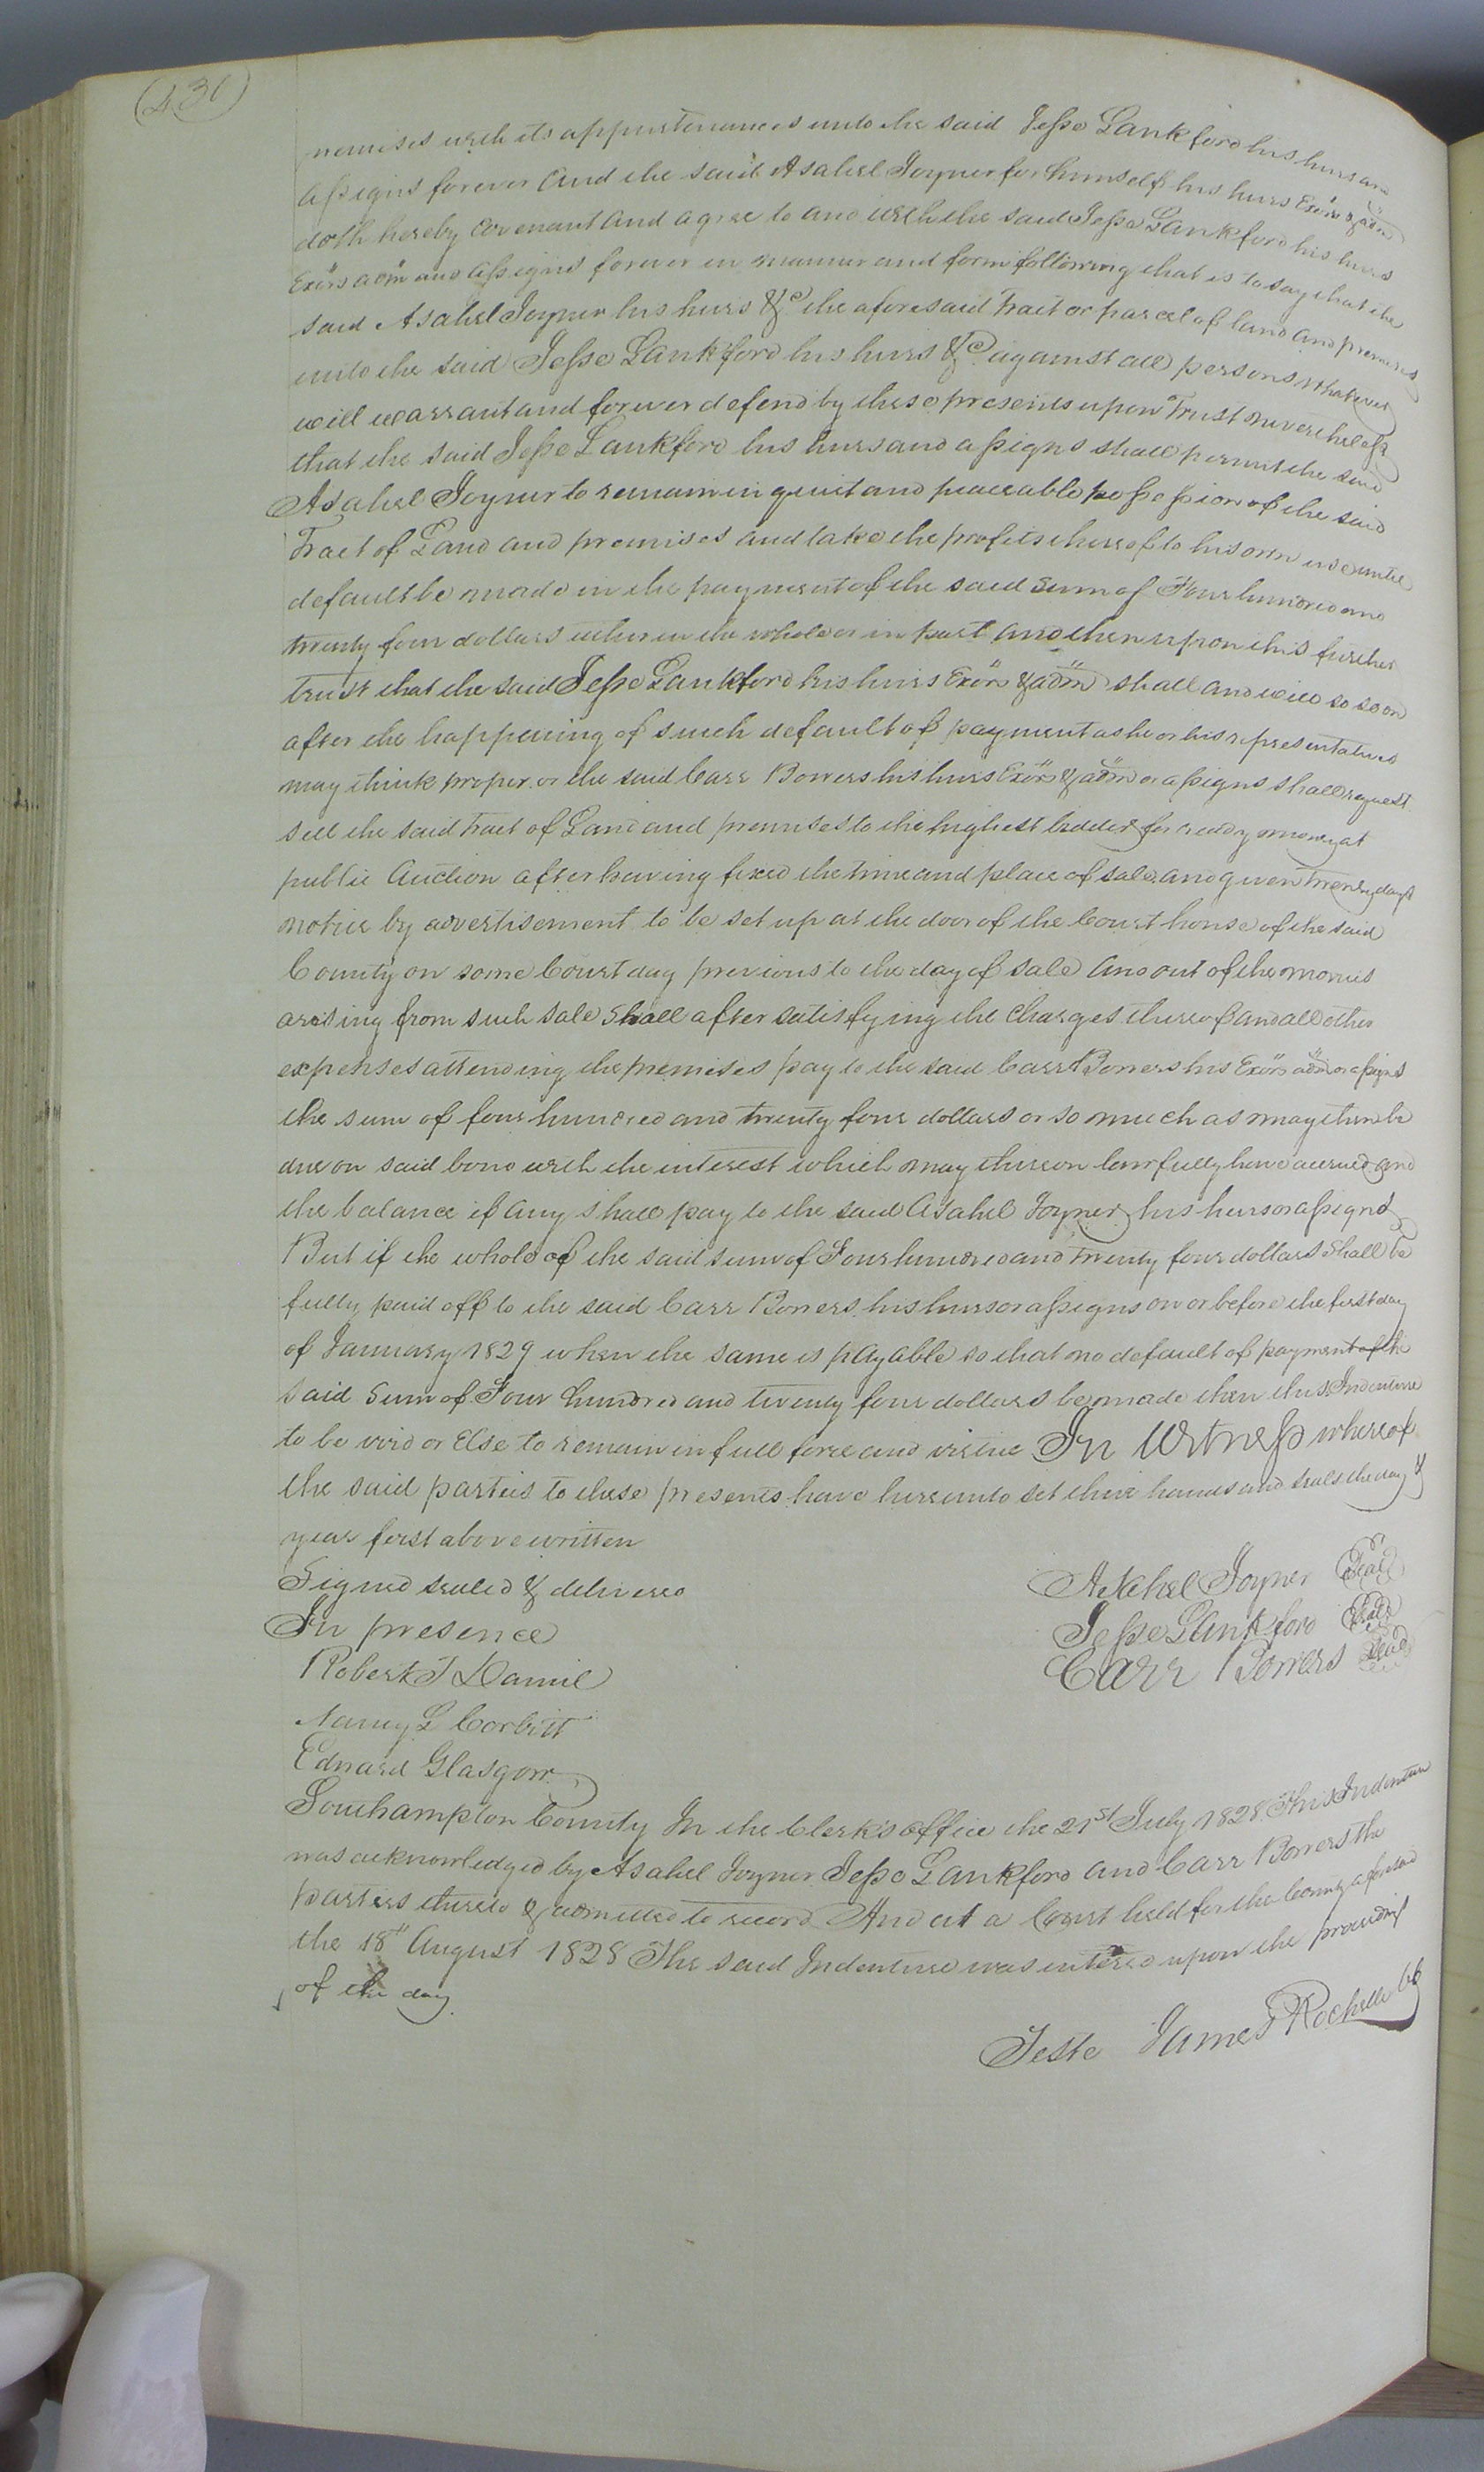 (430)
premises with its appurtenances unto the said Jesse Lankford his heirs and
assigns forever And the said Asahel Joyner for himself his heirs Exors & adm
doth hereby covenant and agree to and with the said Jesse Lankford his heirs
Exors adm and assigns forever in manner and form following that is to say that the
said Asahel Joyner his heirs &c the aforesaid Tract or parcel of land and premises
unto the said Jesse Lankford his heirs &c against all persons whatever
will warrant and forever defend by these presents upon Trust nevertheless
that the said Jesse Lankford his heirs and assigns shall permit the said
Asahel Joyner to remain in quiet and peaceable possession of the said
Tract of Land and premises and take the profits thereof to his own use until
default be made in the payment of the said sum of Four hundred and
twenty four dollars either in the whole or in part and then upon this further
trust that the said Jesse Lankford his heirs Exors & adm shall and will so soon
after the happening of such default of payment as he or his representatives
may think proper or the said Carr Bowers his heirs Exors & adm or assigns shall request
sell the said Tract of Land and premises to the highest bidder for ready money at
public Auction after having fixed the time and place of sale and given twenty days
notice by advertisement to be set up at the door of the Court house of the said
County on some Court day previous to the day of sale And out of the monies
arising from such sale Shall after satisfying the Charges thereof and all other
expenses attending the premises pay to the said Carr Bowers his Exors adm or assigns
the sum of four hundred and twenty four dollars or so much as may then be
due on said bond with the interest which may thereon lawfully have accrued and
the balance if any shall pay to the said Asahel Joyner his heirs or assigns
But if the whole of the said sum of Four hundred and twenty four dollars Shall be
fully paid off to the said Carr Bowers his heirs or assigns on or before the first day
of January 1829 when the same is payable so that no default of payment of the
said Sum of Four hundred and twenty four dollars be made then this Indenture
to be void or Else to remain in full force and virtue In Witness whereof
the said parties to these presents have hereunto set their hands and seals the day &
year first above written
Signed sealed & delivered
In presence
Robert T Daniel
Nancy L Corbitt
Edward Glasgow
Asahel Joyner Seal
Jesse Lankford Seal
Carr Bowers Seal
Southampton County In the Clerks office the 21st July 1828 This Indenture
was acknowledged by Asahel Joyner Jesse Lankford and Carr Bowers the
parties thereto & admitted to record And at a Court held for the County aforesaid
the 18th August 1828 The said Indenture was entered upon the proceedings
of the day
Teste James Rochelle CC